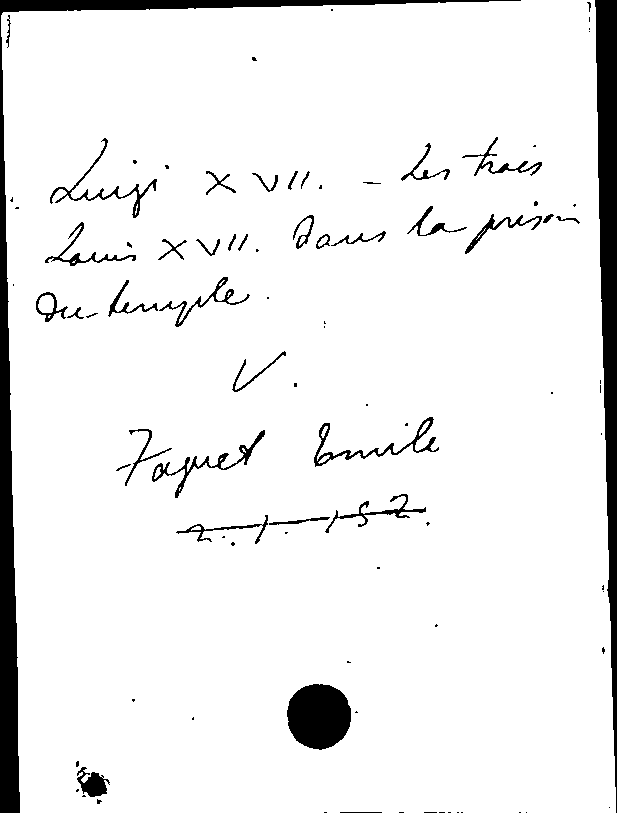 Luigi XVII. - Les trois
Louis XVII. dans la prison
du temple.
V.
Faguet Emile
2.1.152.